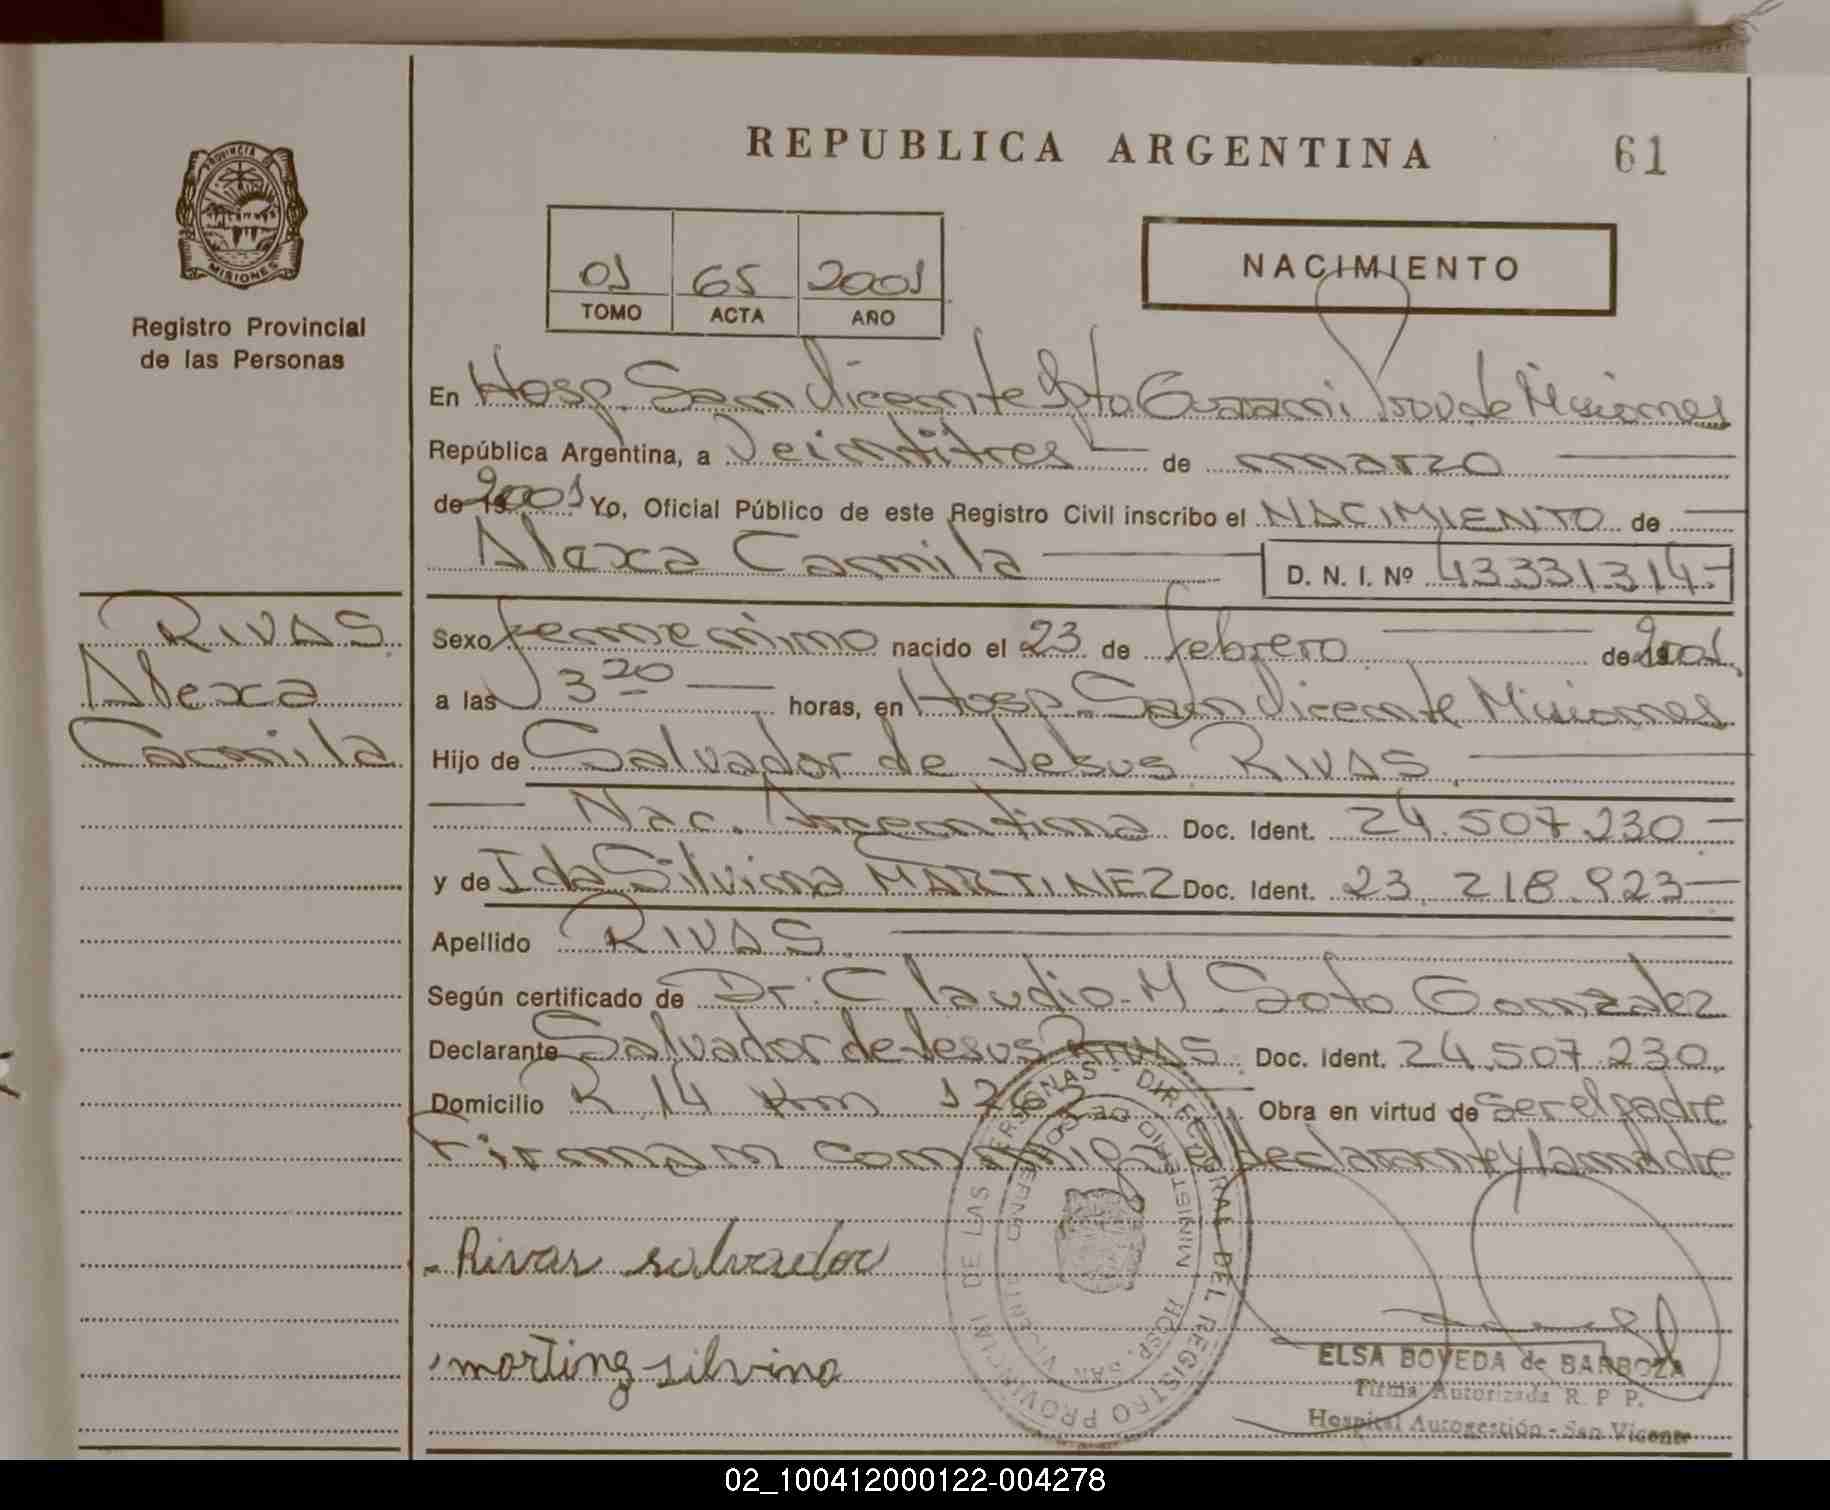 REPUBLICA ARGENTINA
61
PROVINCIA
MISIONES
Registro Provincial
de las Personas
01 65 2001
TOMO ACTA AÑO
NACIMIENTO
En Hosp. San Vicente Dpto Guarani Prov de Misiones
República Argentina, a Veintitres de marzo
de 19 2001 Yo, Oficial Público de este Registro Civil inscribo el NACIMIENTO de
Alexa Camila D. N. I. Nº 43331314
RIVAS
Alexa
Camila
Sexo femenino nacido el 23 de febrero de 2001
a las 3 20 horas, en Hosp. San Vicente Misiones
Hijo de Salvador de Jesus RIVAS
Nac. Argentina Doc. Ident. 24.507.230
y de Ida Silvina MARTINEZ Doc. Ident. 23.218.923
Apellido RIVAS
Según certificado de Dr. Claudio M Soto Gonzalez
Declarante Salvador de Jesus RIVAS Doc. Ident. 24.507.230
Domicilio R 14 Km 1262 Obra en virtud de ser el padre
Firman conmigo el declarante y la madre
Rivas salvador
martinz silvina
DIREC. GRAL DEL REGISTRO PROVINCIAL DE LAS PERSONAS
MINISTERIO DE GOBIERNO
HOSP. SAN VICENTE
ELSA BOVEDA de BARBOZA
Firma Autorizada R. P. P.
Hospital Autogestión - San Vicente
02_100412000122-004278